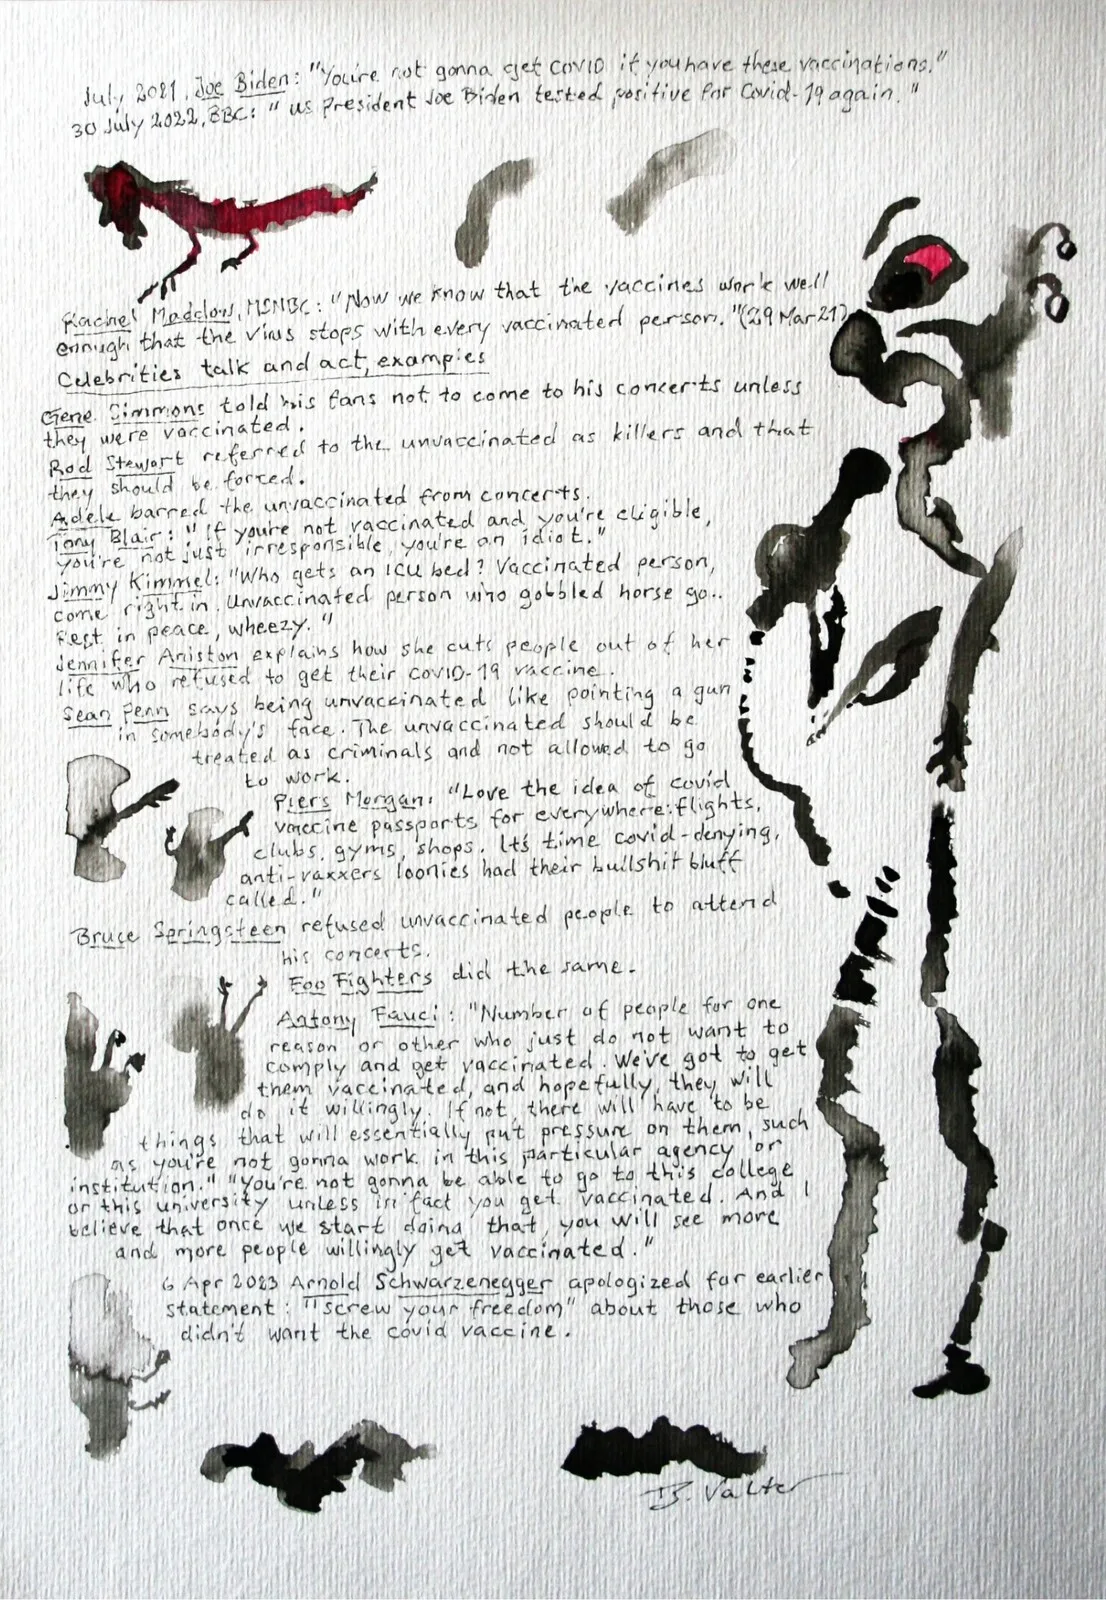 July 2021, Joe Biden: "You're not gonna get COVID if you have these vaccinations."
30 July 2022, BBC: "US President Joe Biden tested positive for Covid-19 again."
Rachel Maddow, MSNBC: "Now we know that the vaccines work well
enough that the virus stops with every vaccinated person." (29 Mar 21)
Celebrities talk and act, examples
Gene Simmons told his fans not to come to his concerts unless
they were vaccinated.
Rod Stewart referred to the unvaccinated as killers and that
they should be forced.
Adele barred the unvaccinated from concerts.
Tony Blair: "If you're not vaccinated and you're eligible,
you're not just irresponsible, you're an idiot."
Jimmy Kimmel: "Who gets an ICU bed? Vaccinated person,
come right in. Unvaccinated person who gobbled horse go..
Rest in peace, wheezy."
Jennifer Aniston explains how she cuts people out of her
life who refused to get their COVID-19 vaccine.
Sean Penn says being unvaccinated like pointing a gun
in somebody's face. The unvaccinated should be
treated as criminals and not allowed to go
to work.
Piers Morgan: "Love the idea of covid
vaccine passports for everywhere: flights,
clubs, gyms, shops. It's time covid-denying,
anti-vaxxers loonies had their bullshit bluff
called."
Bruce Springsteen refused unvaccinated people to attend
his concerts.
Foo Fighters did the same.
Antony Fauci: "Number of people for one
reason or other who just do not want to
comply and get vaccinated. We've got to get
them vaccinated, and hopefully, they will
do it willingly. If not, there will have to be
things that will essentially put pressure on them, such
as you're not gonna work in this particular agency or
institution." "You're not gonna be able to go to this college
or this university unless in fact you get vaccinated. And I
believe that once we start doing that, you will see more
and more people willingly get vaccinated."
6 Apr 2023 Arnold Schwarzenegger apologized for earlier
statement: "screw your freedom" about those who
didn't want the covid vaccine.
B. Valter